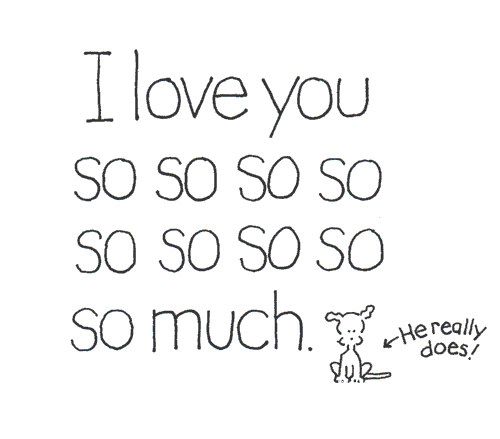 I love you
so so so so
so so so so
so much.
He really
does!